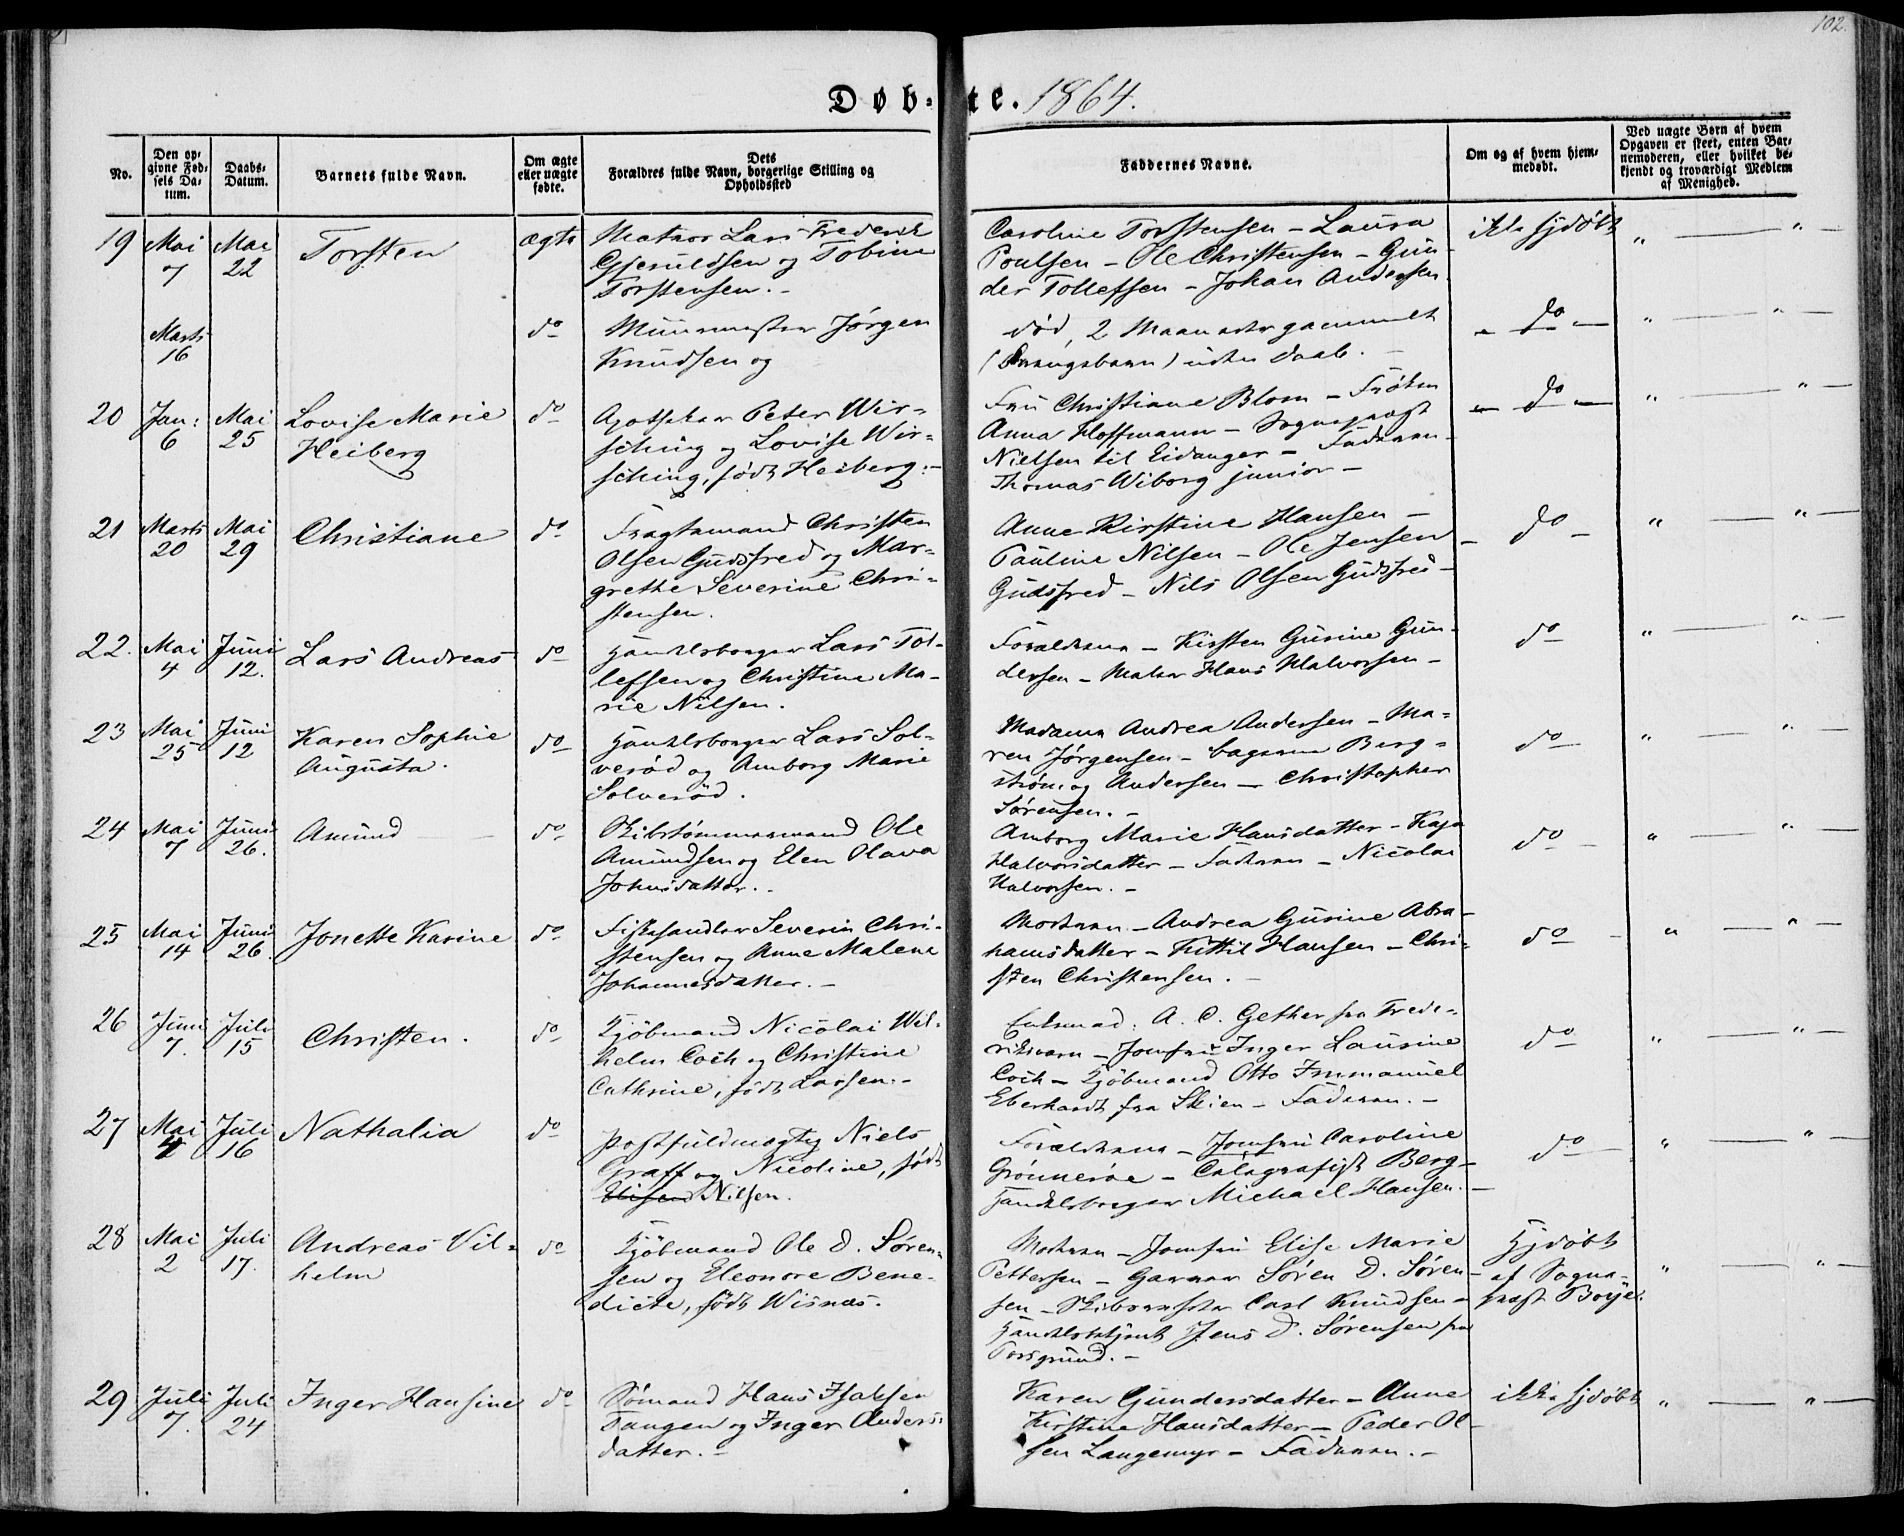 102.
Døbte. 1864.
No.
Den opgivne Fødsels Datum.
Daabs-Datum.
Barnets fulde Navn.
Om ægte eller uægte fødte.
Dets Forældres fulde Navn, borgerlige Stilling og Opholdssted
Faddernes Navne.
Om og af hvem hjemmedøbt.
Ved uægte Børn af hvem Opgaven er skeet, enten Barnemoderen, eller hvilket bekjendt og troværdigt Medlem af Menighed.
19 Mai 7 Mai 22 Torsten ægte
Matros Lars Frederik
Gjeruldsen og Tobine
Torstensen.-
Caroline Torstensen - Laura
Poulsen - Ole Christensen - Gun-
der Tollefsen - Johan Andersen.
ikke hjdøbt " — " —
Marts 16 do
Muurmester Jørgen
Knudsen og
død, 2 Maaneder gammelt
(Drengebarn) uden Daab. -
- do - " — " —
20 Jan: 6 Mai 25 Lovise Marie
Heiberg do
Apotheker Peter Wir-
sching og Lovise Wir-
sching, født Heiberg.-
Fru Christiane Blom - Frøken
Anna Hoffmann - Sognepræst
Nielsen til Eidanger - Faderen -
Thomas Wiborg junior -
- do - " — " —
21 Marts 20 Mai 29 Christiane do
Fragtemand Christen
Olsen Gudsfred og Mar-
grethe Severine Chri-
stensen.
Anne Kirstine Hansen -
Pauline Nilsen - Ole Jensen -
Gudsfred - Nils Olsen Gudsfred -
do - " — " —
22. Mai 4 Juni 12. Lars Andreas do
Handelsborger Lars Tol-
lefsen og Christine Ma-
rie Nilsen.
Forældrene - Kirsten Gurine Gun-
dersen - Maler Hans Halvorsen -
do " — " —
23 Mai 25 Juni 12 Karen Sophie
Augusta. do
Handelsborger Lars Sol-
verød og Amborg Marie
Solverød.
Madame Andrea Andersen - Ma-
ren Jørgensen - bagerne Berg-
strøm og Andersen - Christopher
Sørensen. -
do - " — " —
24 Mai 7 Juni 26. Amund do
Skibstømmermand Ole
Amundsen og Elen Olava
Johnsdatter. -
Amborg Marie Hansdatter - Kaja
Halvorsdatter - Faderen - Nicolai
Halvorsen. -
do - " — " —
25 Mai 14 Juni 26. Jonette Karine do
Fiskehandler Severin Chri-
stensen og Anne Malene
Johannesdatter. -
Moderen - Andrea Gurine Abra-
hamsdatter - Kittil Hansen - Chri-
sten Christensen. -
do - " — " —
26 Juni 7. Juli 15 Christen. do
Kjøbmand Nicolai Wil-
helm Coch og Christine
Cathrine, født Larsen.-
A. C. Gether fra Frede-
riksværn - Jomfru Inger Laurine
Coch - Kjøbmand Otto Immanuel
Eberhardt fra Skien - Faderen. -
do - " — " —
27 Mai 4 Juli 16 Nathalia do
Postfuldmægtig Niels
Graff og Nicoline, født
Nilsen.
Forældrene - Jomfru Caroline
Grønnerøe - Berg -
Handelsborger Michael Hansen. -
do - " — " —
28 Mai 2 Juli 17. Andreas Vil-
helm do
Kjøbmand Ole D. Søren-
sen og Eleonore Bene-
dicte, født Wisnæs.
Moderen - Jomfru Elise Marie
Pettersen - Garver Søren D. Søren-
sen - Skibsmester Carl Knudsen -
Handelsbetjent Jens D. Sørensen fra
Porsgrund. -
Hjdøbt
af Sogne-
præst Borje. " — " —
29 Juli 7. Juli 24 Inger Hansine do
Sømand Hans Isaksen
Tangen og Inger Anders-
datter. -
Karen Gundersdatter - Anne
Kirstine Hansdatter - Peder Ol-
sen Langemyr - Faderen. -
ikke hjdøbt " — " —